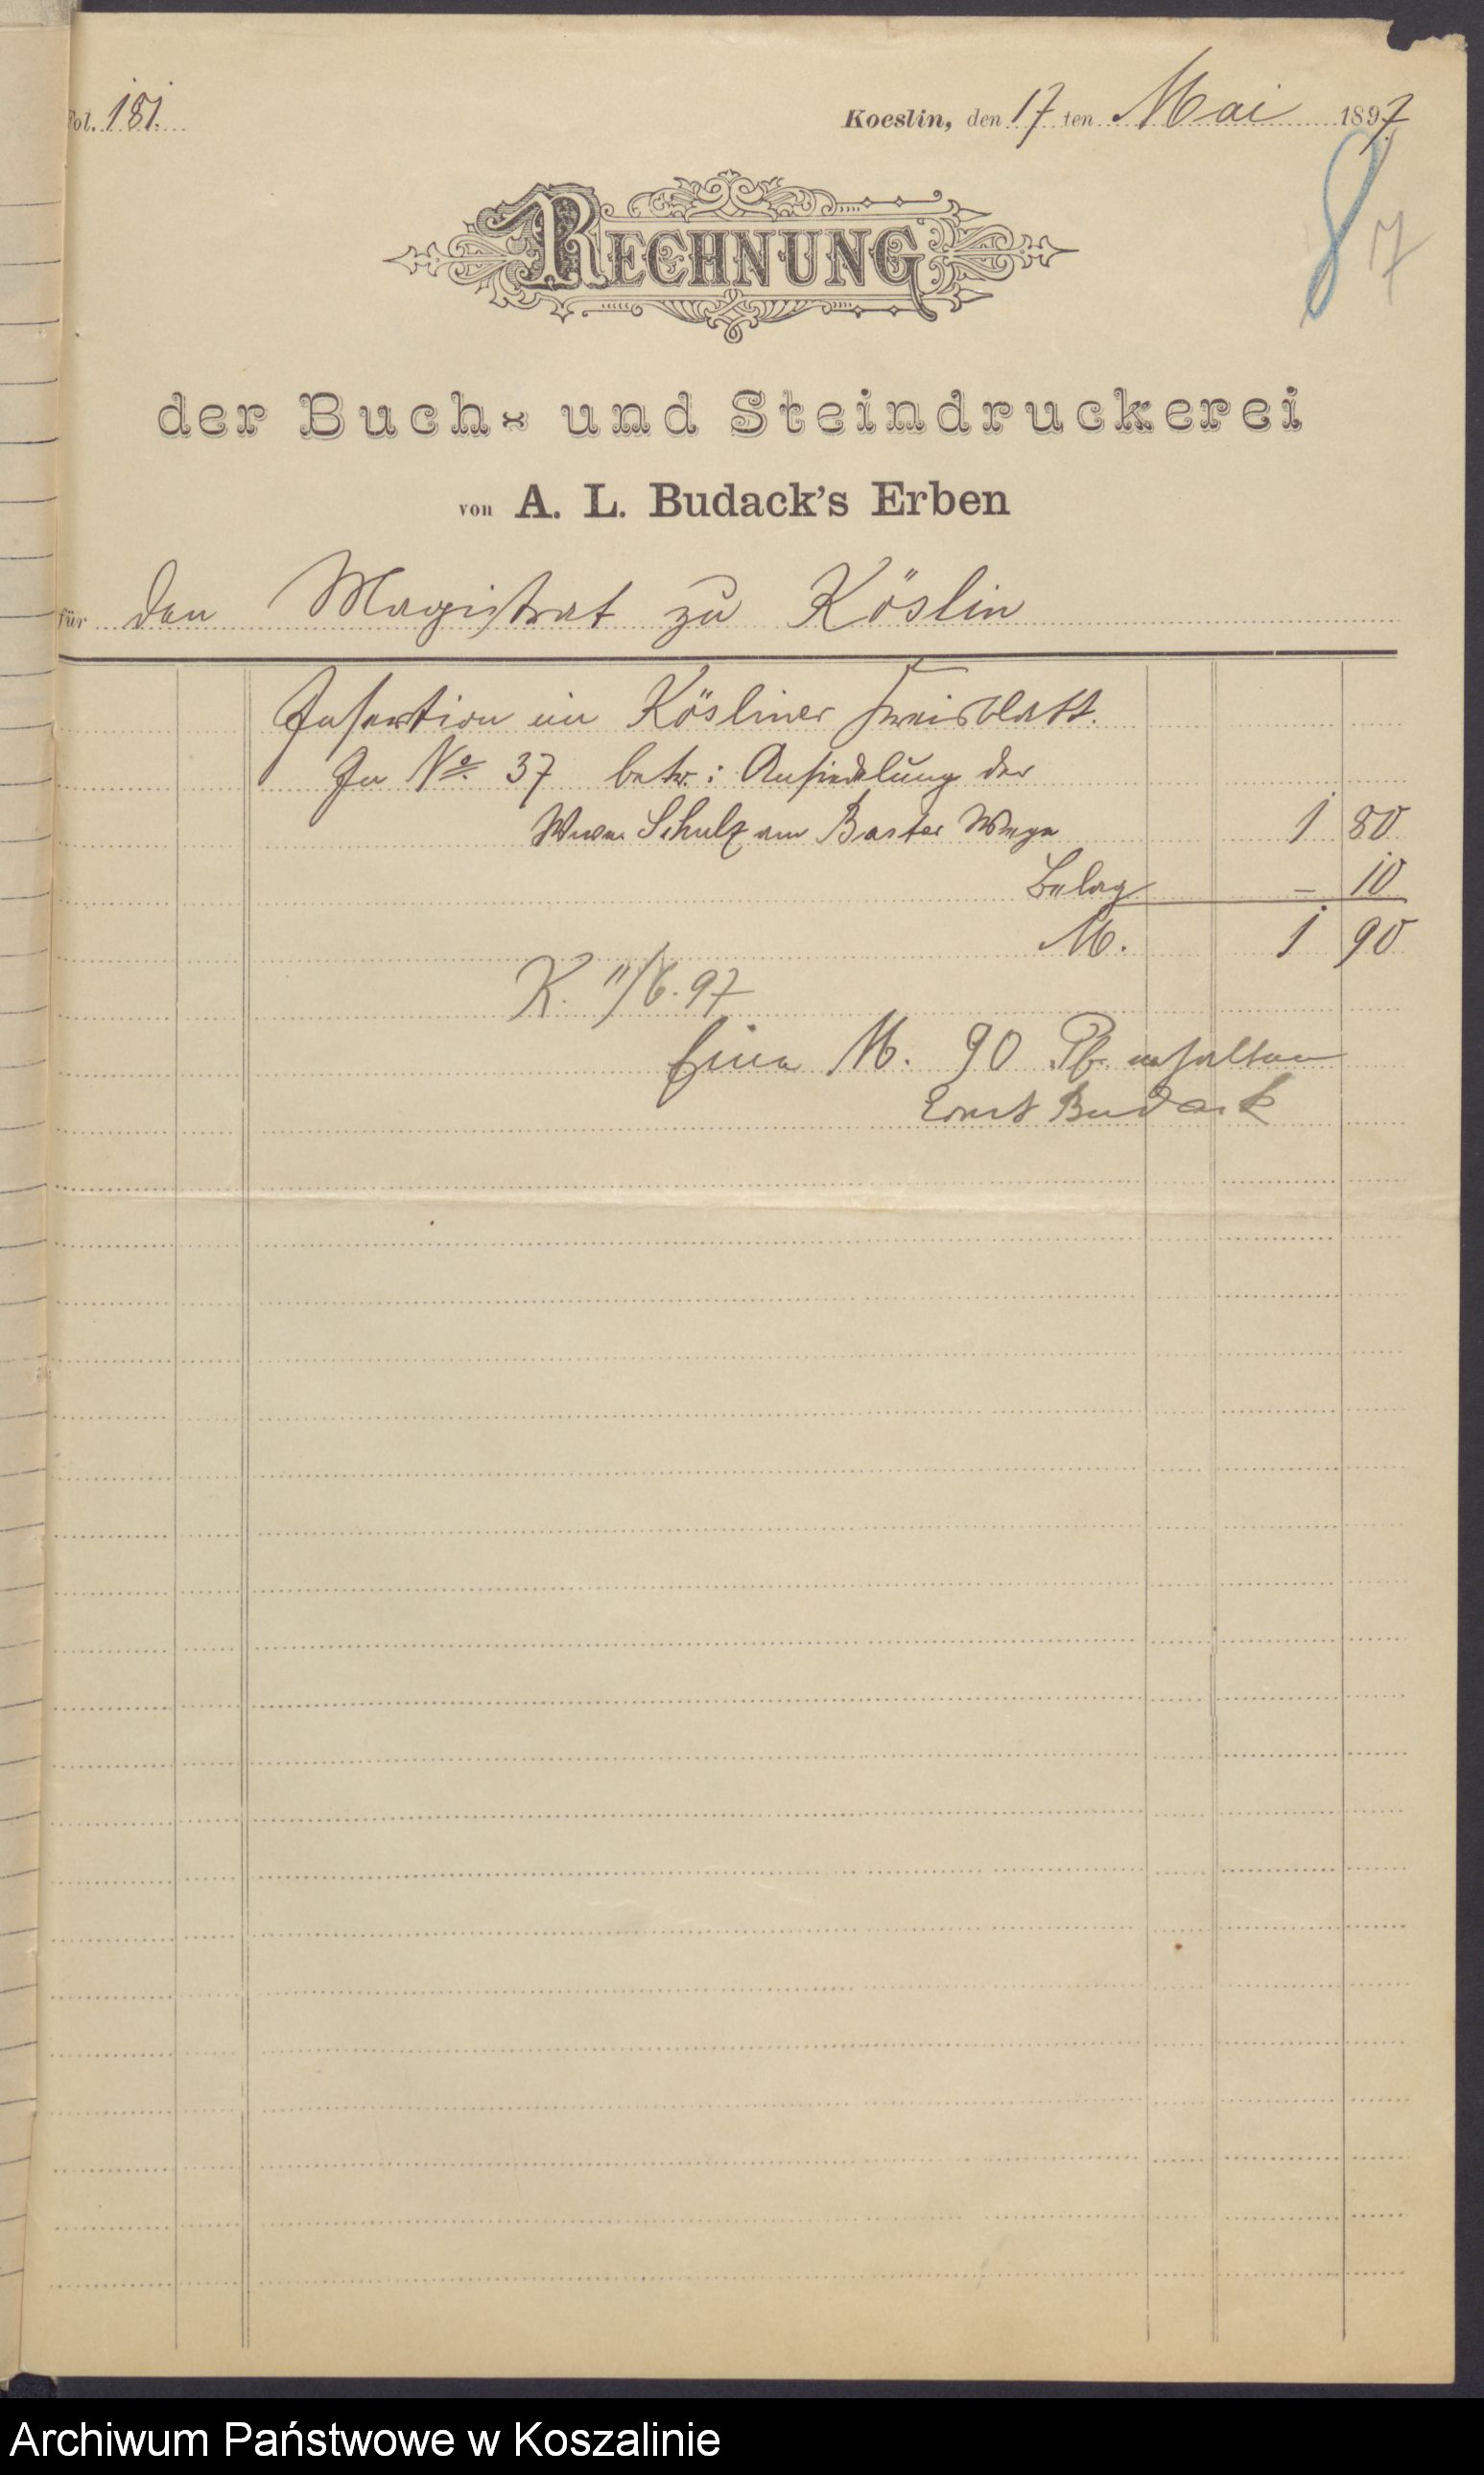 Fol. 181.
Koeslin, den 17 ten Mai 1897
8 7
RECHNUNG
der Buch- und Steindruckerei
von A. L. Budack's Erben
für den Magistrat zu Köslin
Insertion im Kösliner Kreisblatt.
In No. 37 betr: Ansiedelung der
Wwe. Schulz am Baster Wege 1 80
Belag – 10
M. 1 90
K. 11/6. 97
Eine M. 90 Pf. erhalten
Ernst Budack
Archiwum Państwowe w Koszalinie